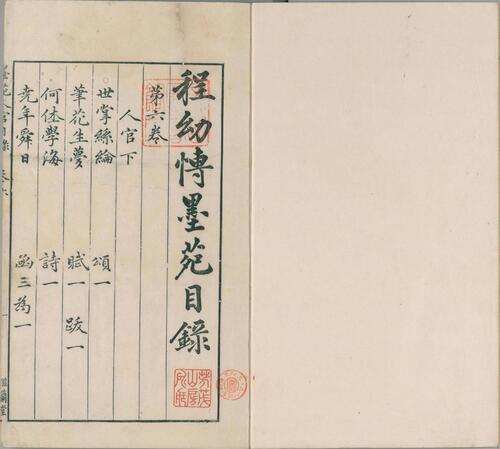 程幼博墨苑目錄
第六卷
人官下
世掌絲綸 頌一
筆花生夢 賦一 跋一
何休學海 詩一
堯年舜日 函三為一
墨苑人官目錄 卷六 一 滋蘭堂